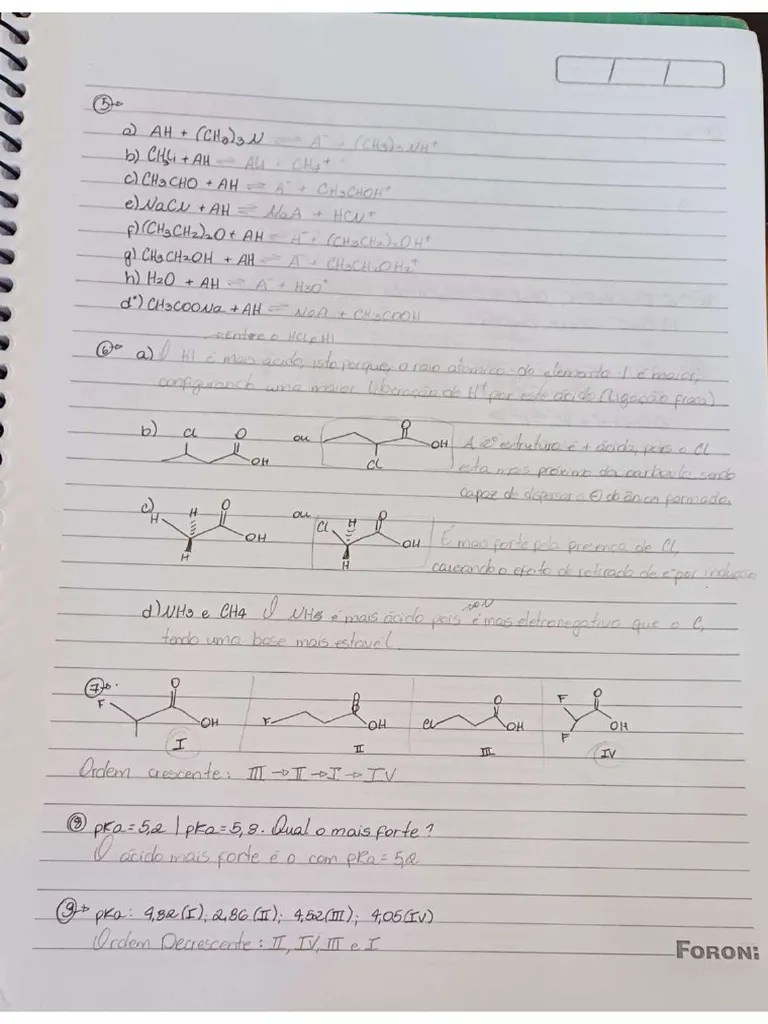 5→
a) AH + (CH3)3N ⇌ A⁻ + (CH3)3NH⁺
b) CH4 + AH ⇌ AH + CH4⁺
c) CH3CHO + AH ⇌ A⁻ + CH3CHOH⁺
e) NaCN + AH ⇌ NaA + HCN⁺
f) (CH3CH2)2O + AH ⇌ A⁻ + (CH3CH2)2OH⁺
g) CH3CH2OH + AH ⇌ A⁻ + CH3CH2OH2⁺
h) H2O + AH ⇌ A⁻ + H3O⁺
d*) CH3COONa + AH ⇌ NaA + CH3COOH
entre o HCl e HI
6→ a) O HI é mais ácido, isto porque, o raio atômico do elemento I é maior,
configurando uma maior liberação de H⁺ por este ácido (ligação fraca)
b) Cl O OH ou O OH Cl A 2ª estrutura é + ácida, pois o Cl
esta mais próximo da carbonila sendo
capaz de dispersar o ⊖ do ânion formado.
c) H H H O OH ou Cl H H O OH É mais forte pela presença de Cl,
causando o efeito de retirada de e⁻ por indução
d) NH3 e CH4 O NH3 é mais ácido pois o N é mais eletronegativo que o C,
tendo uma base mais estavel.
7→
F O OH I
F O OH II
Cl O OH III
F F O OH IV
Ordem crescente: III → II → I → IV
8 pKa = 5,2 | pKa = 5,8. Qual o mais forte?
O ácido mais forte é o com pKa = 5,2
9→ pKa: 4,82 (I); 2,86 (II); 4,52 (III); 4,05 (IV)
Ordem Decrescente: II, IV, III e I
FORONI